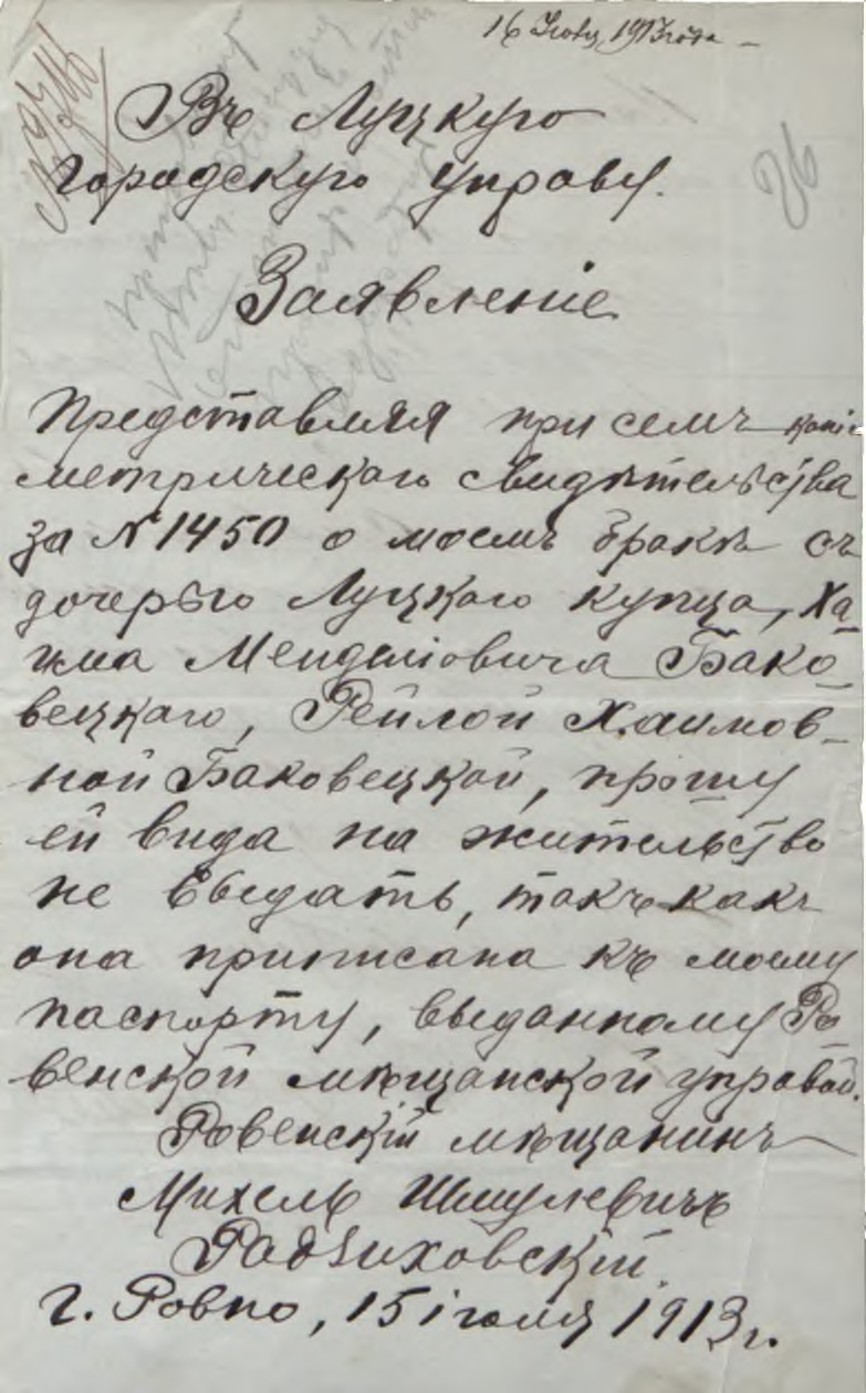 16 Іюля 1913 года
26
Въ Луцкую
Городскую Управу.
Заявленіе
Представляя при семъ копію
метрическаго свидѣтельства
за № 1450 о моемъ бракѣ съ
дочерью Луцкаго купца, Ха-
има Менделіовича Бако-
вецкаго, Рейлой Хаимов-
ной Баковецкой, прошу
ей вида на жительство
не выдать, такъ какъ
она приписана къ моему
паспорту, выданному Ро-
венской мѣщанской управой.
Ровенскій мѣщанинъ
Михель Шмулевичъ
Радзиховскій.
г. Ровно, 15 іюля 1913 г.